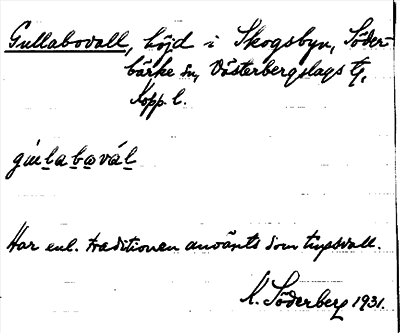 Gullabovall, höjd i Skogsbyn, Söder-
bärke sn, Västerbergslags tg,
Kopp. l.
gulabovál
Har enl. traditionen använts som tingsvall.
Söderberg 1931.